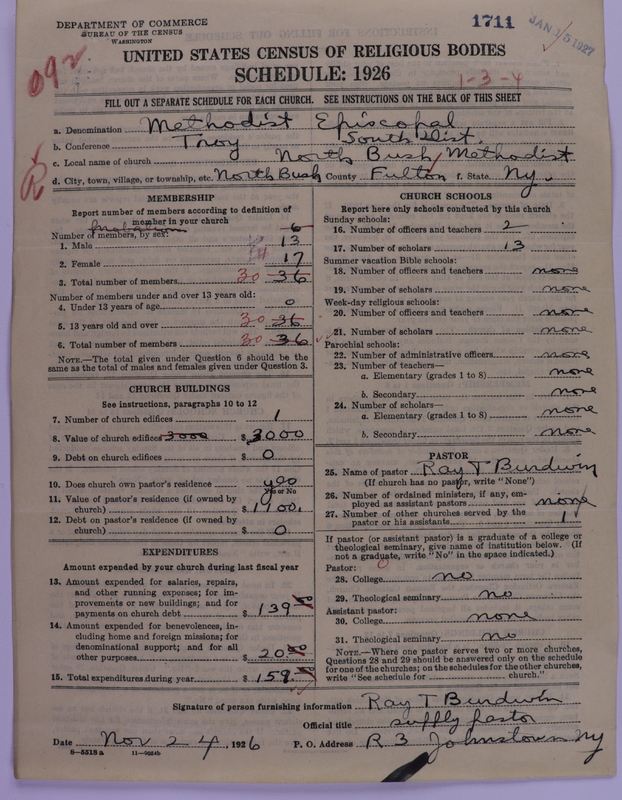 DEPARTMENT OF COMMERCE
BUREAU OF THE CENSUS
WASHINGTON
1711
JAN 15 1927
UNITED STATES CENSUS OF RELIGIOUS BODIES
SCHEDULE: 1926
092
1-3-4
FILL OUT A SEPARATE SCHEDULE FOR EACH CHURCH. SEE INSTRUCTIONS ON THE BACK OF THIS SHEET
a. Denomination Methodist Episcopal
b. Conference Troy South Dist.
c. Local name of church North Bush Methodist
d. City, town, village, or township, etc. North Bush County Fulton f. State Ny.
MEMBERSHIP
Report number of members according to definition of
member in your church
Probation 6
Number of members, by sex:
1. Male 13
2. Female 17
3. Total number of members 30 36
Number of members under and over 13 years old:
4. Under 13 years of age 0
5. 13 years old and over 30 36
6. Total number of members 30 36
NOTE.—The total given under Question 6 should be the
same as the total of males and females given under Question 3.
CHURCH BUILDINGS
See instructions, paragraphs 10 to 12
7. Number of church edifices 1
8. Value of church edifices 3000 $ 3000
9. Debt on church edifices $ 0
10. Does church own pastor's residence yes
Yes or No
11. Value of pastor's residence (if owned by
church) $
12. Debt on pastor's residence (if owned by
church) $ 0
EXPENDITURES
Amount expended by your church during last fiscal year
13. Amount expended for salaries, repairs,
and other running expenses; for im-
provements or new buildings; and for
payments on church debt $ 139 00
14. Amount expended for benevolences, in-
cluding home and foreign missions; for
denominational support; and for all
other purposes $ 20 00
15. Total expenditures during year $ 159 00
CHURCH SCHOOLS
Report here only schools conducted by this church
Sunday schools:
16. Number of officers and teachers 2
17. Number of scholars 13
Summer vacation Bible schools:
18. Number of officers and teachers none
19. Number of scholars none
Week-day religious schools:
20. Number of officers and teachers none
21. Number of scholars none
Parochial schools:
22. Number of administrative officers none
23. Number of teachers—
a. Elementary (grades 1 to 8) none
b. Secondary none
24. Number of scholars—
a. Elementary (grades 1 to 8) none
b. Secondary none
PASTOR
25. Name of pastor Ray T Burdwin
(If church has no pastor, write "None")
26. Number of ordained ministers, if any, em-
ployed as assistant pastors none
27. Number of other churches served by the
pastor or his assistants 1
If pastor (or assistant pastor) is a graduate of a college or
theological seminary, give name of institution below. (If
not a graduate, write "No" in the space indicated.)
Pastor:
28. College no
29. Theological seminary no
Assistant pastor:
30. College none
31. Theological seminary no
NOTE.—Where one pastor serves two or more churches,
Questions 28 and 29 should be answered only on the schedule
for one of the churches; on the schedules for the other churches,
write "See schedule for church."
Signature of person furnishing information Ray T Burdwin
Official title supply pastor
Date Nov 24, 1926 P. O. Address R 3 Johnstown Ny
8-5518 a